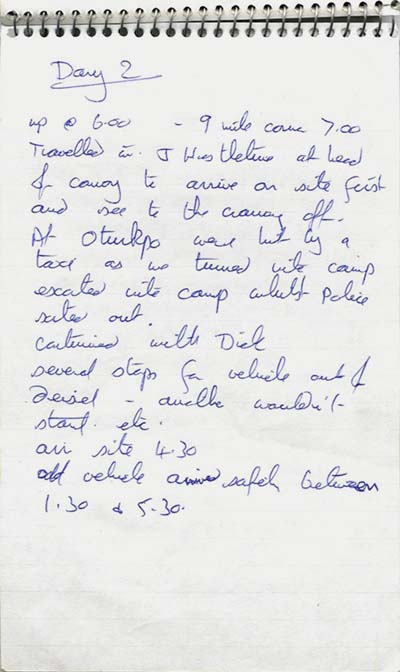 Day 2
up @ 6.00 - 9 mile corner 7.00
Travelled in J Hustletime at head
of convoy to arrive on site first
and see to the craning off.
At Oturkpo were hit by a
taxi as we turned into camp
escorted into camp whilst Police
sorted out.
continued with Dick
several stops for vehicle out of
Deisel - another wouldn't
start etc.
on site 4.30
vehicle arrived safely between
1.30 & 5.30.